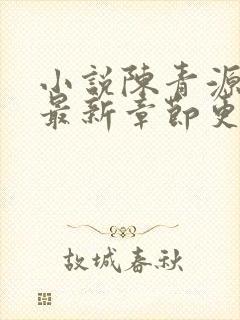 小説陳青源
最新章節更
故城春秋